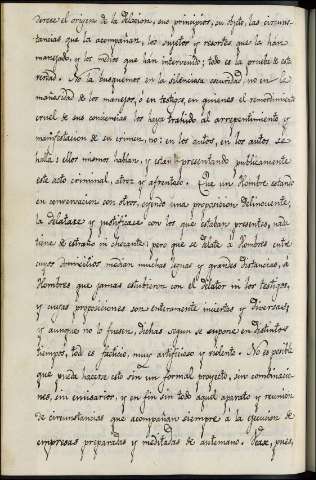 derese el origen de la delacion, sus principios, su objeto, las circuns-
tancias que la acompañan, los sujetos y resortes que la han
manejado, y los medios que han intervenido; todo es la prueba de esta
verdad. No la busquemos en la silenciosa obscuridad, no en la
mañosidad de los manejos, ó en testigos, en quienes el remordimiento
cruel de sus conciencias los haya trahido al arrepentimiento y
manifestacion de su crimen, no: en los autos, en los autos se
halla; ellos mismos hablan, y estan presentando publicamente
este acto criminal, atroz y afrentado. Que un Hombre estando
en conversacion con otros, oyendo una proposicion delincuente,
la delatare y justificara con los que estaban presentes, nada
tiene de estraño ni chocante; pero que se delate á Hombres entre
cuyos domicilios median muchas leguas y grandes distancias, á
Hombres que jamas estubieron con el delator ni los testigos,
y cuyas proposiciones son enteramente inciertas y diversas;
y aunque no lo fuesen, dichas segun se supone en distintos
tiempos, todo es facticio, muy artificioso y violento. No es posible
que pueda hacerse esto sin un formal proyecto, sin combinacio-
nes, sin emisarios, y en fin sin todo aquel aparato y reunion
de circunstancias que acompañan siempre á la ejecucion de
empresas preparadas y meditadas de antemano. Vease, pues,